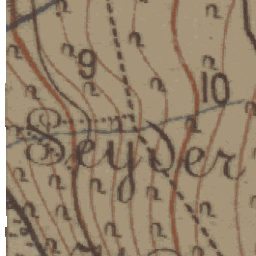 9
10
Seyder